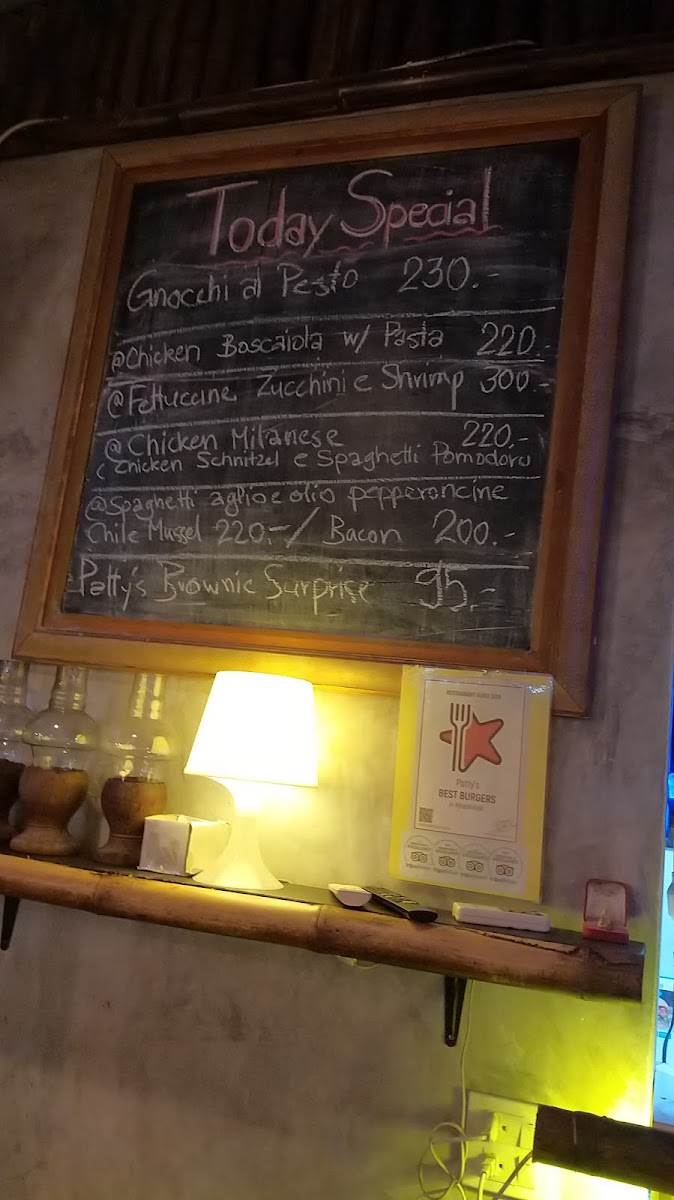 Today Special
Gnocchi al Pesto 230.-
@Chicken Boscaiola w/ Pasta 220.-
@Fettuccine Zucchini e Shrimp 300.-
@Chicken Milanese 220.-
( Chicken Schnitzel e Spaghetti Pomodoro
@Spaghetti aglio e olio pepperoncine
Chile Mussel 220.-/ Bacon 200.-
Patty's Brownie Surprise 95.-
Patty's
BEST BURGERS